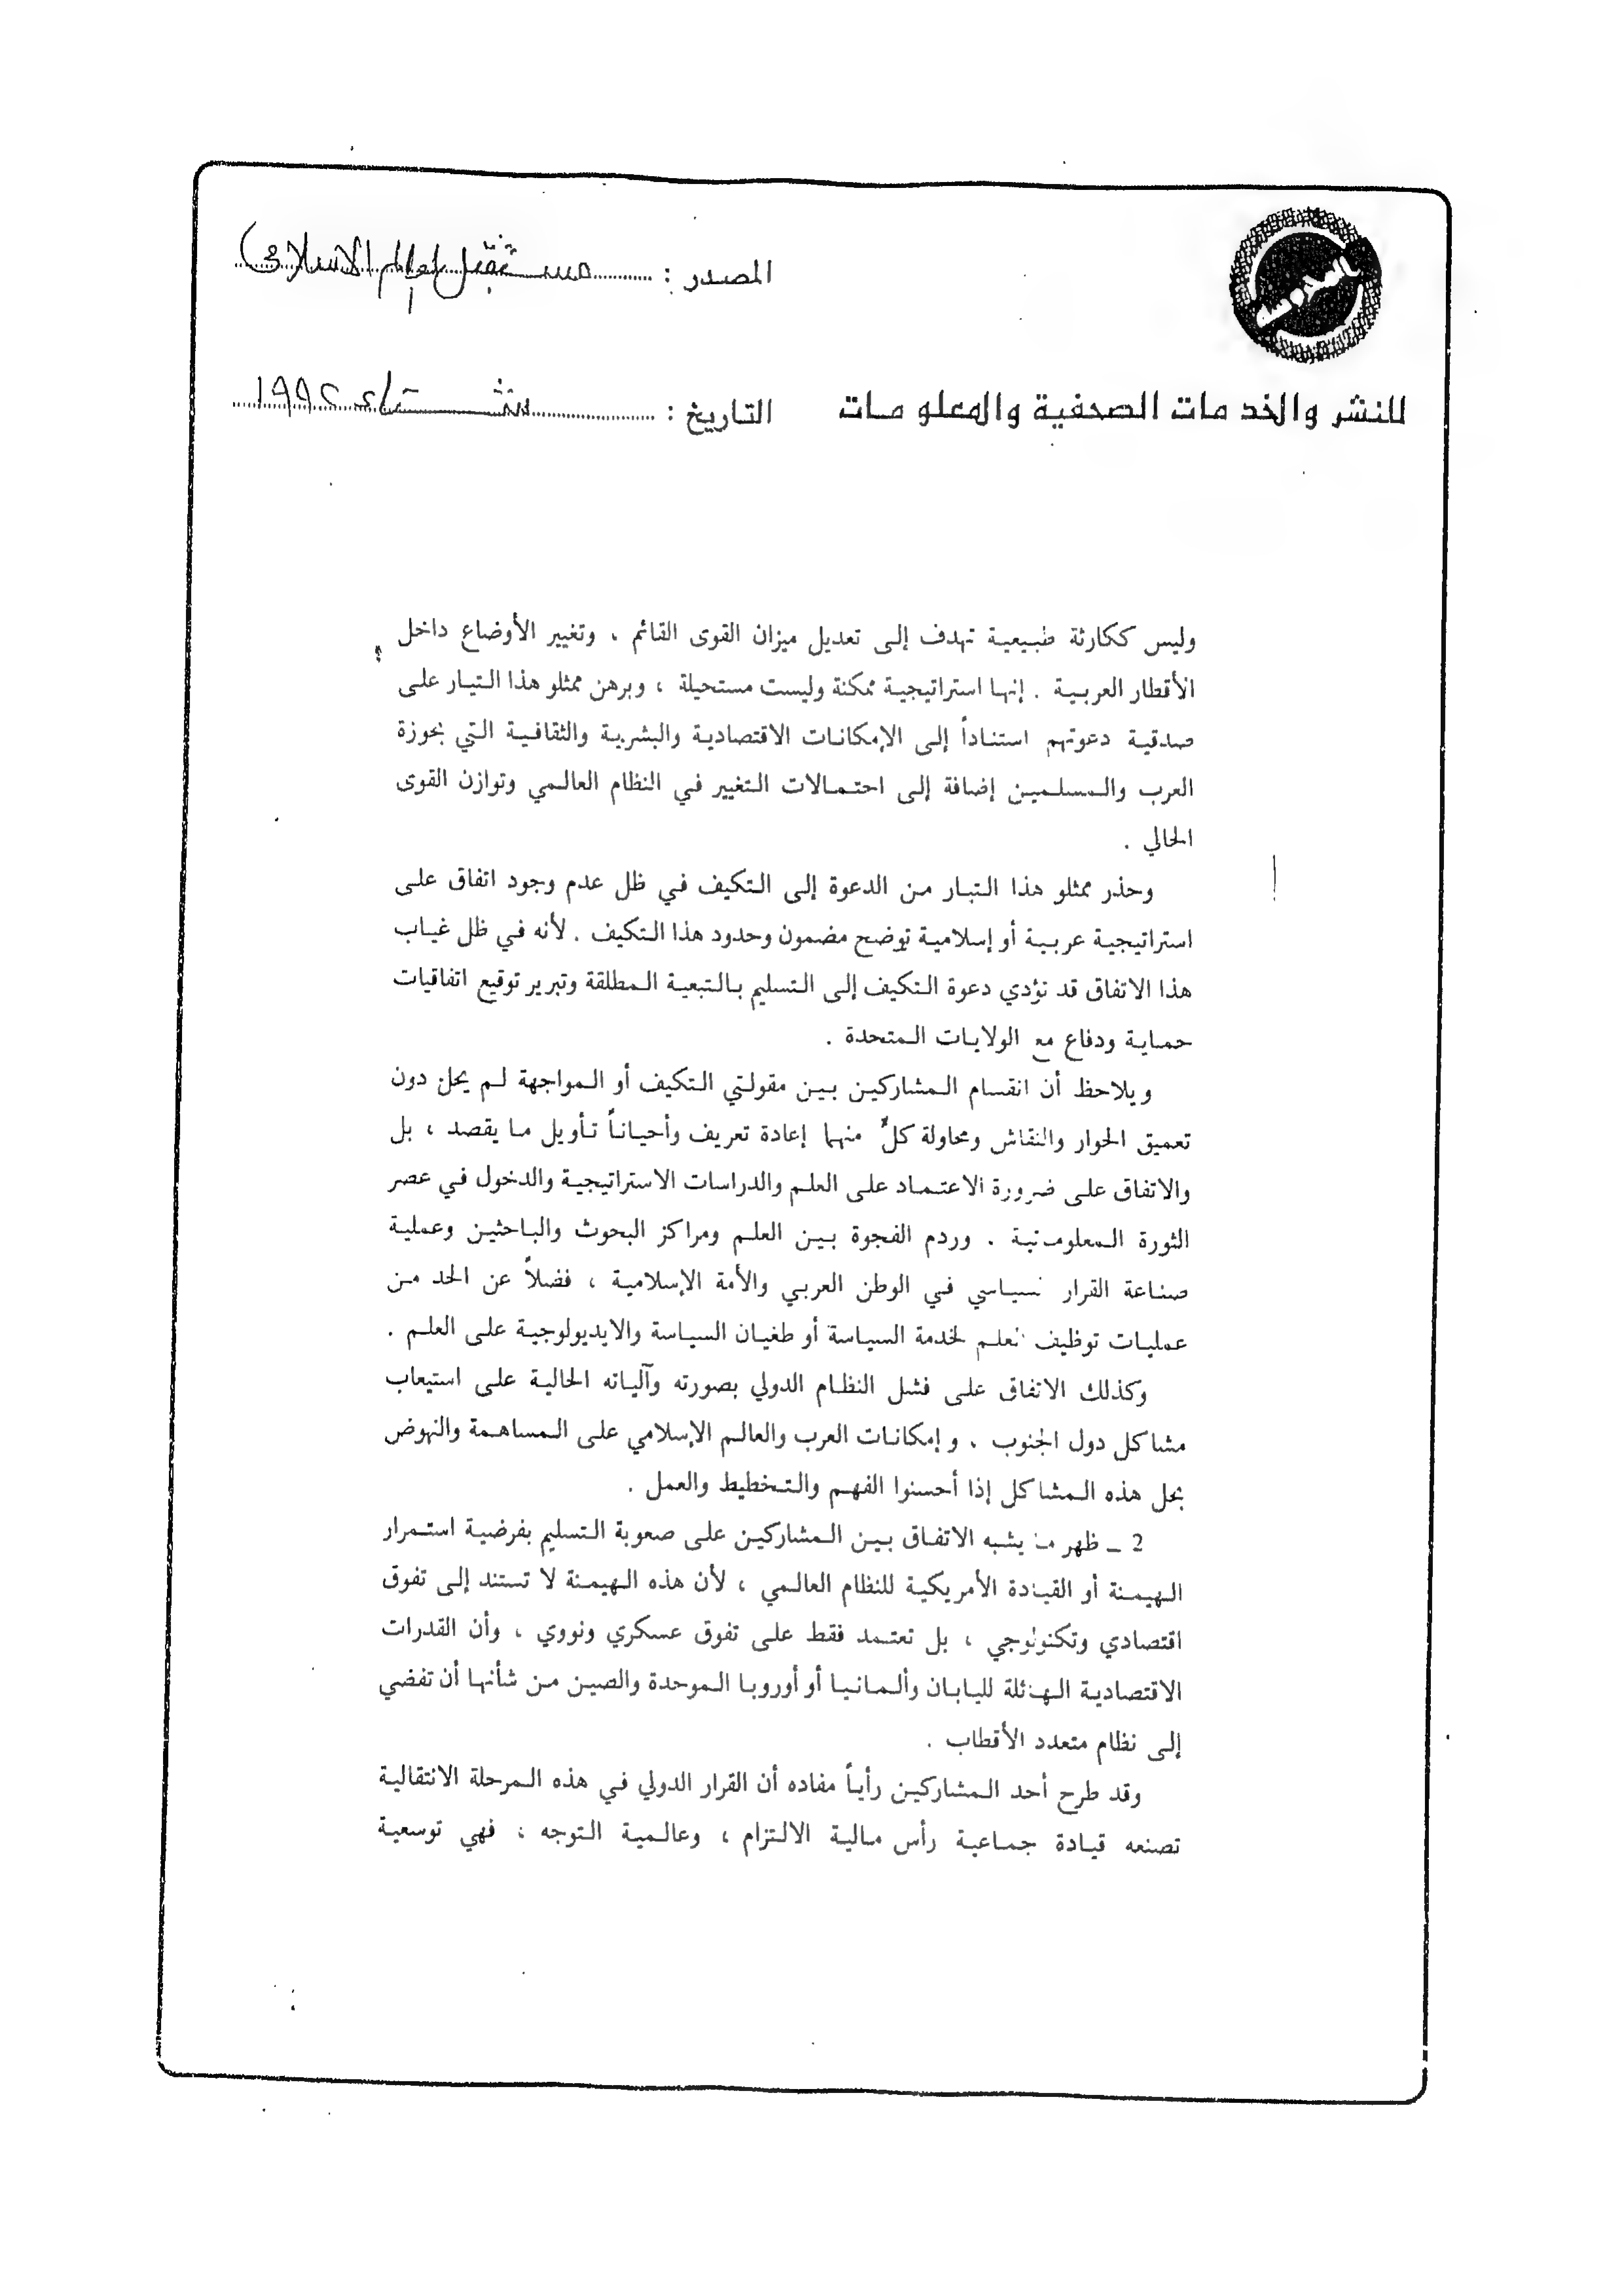 المصدر : مستقبل العالم الاسلامى
للنشر والخدمات الصحفية والمعلومات
التاريخ : شتاء ١٩٩٢
وليس ككارثة طبيعية تهدف إلى تعديل ميزان القوى القائم ، وتغيير الأوضاع داخل
الأقطار العربية . إنها استراتيجية ممكنة وليست مستحيلة ، وبرهن ممثلو هذا التيار على
صدقية دعوتهم استناداً إلى الإمكانات الاقتصادية والبشرية والثقافية التي بحوزة
العرب والمسلمين إضافة إلى احتمالات التغيير في النظام العالمي وتوازن القوى
الحالي .
وحذر ممثلو هذا التيار من الدعوة إلى التكيف في ظل عدم وجود اتفاق على
استراتيجية عربية أو إسلامية توضح مضمون وحدود هذا التكيف . لأنه في ظل غياب
هذا الاتفاق قد تؤدي دعوة التكيف إلى التسليم بالتبعية المطلقة وتبرير توقيع اتفاقيات
حماية ودفاع مع الولايات المتحدة .
ويلاحظ أن انقسام المشاركين بين مقولتي التكيف أو المواجهة لم يحل دون
تعميق الحوار والنقاش ومحاولة كلٍّ منهما إعادة تعريف وأحياناً تأويل ما يقصد ، بل
والاتفاق على ضرورة الاعتماد على العلم والدراسات الاستراتيجية والدخول في عصر
الثورة المعلوماتية . وردم الفجوة بين العلم ومراكز البحوث والباحثين وعملية
صناعة القرار السياسي في الوطن العربي والأمة الإسلامية ، فضلاً عن الحد من
عمليات توظيف العلم لخدمة السياسة أو طغيان السياسة والايديولوجية على العلم .
وكذلك الاتفاق على فشل النظام الدولي بصورته وآلياته الحالية على استيعاب
مشاكل دول الجنوب . وإمكانات العرب والعالم الإسلامي على المساهمة والنهوض
بحل هذه المشاكل إذا أحسنوا الفهم والتخطيط والعمل .
2 ــ ظهر ما يشبه الاتفاق بين المشاركين على صعوبة التسليم بفرضية استمرار
الهيمنة أو القيادة الأمريكية للنظام العالمي ، لأن هذه الهيمنة لا تستند إلى تفوق
اقتصادي وتكنولوجي ، بل تعتمد فقط على تفوق عسكري ونووي ، وأن القدرات
الاقتصادية الهائلة لليابان وألمانيا أو أوروبا الموحدة والصين من شأنها أن تفضي
إلى نظام متعدد الأقطاب .
وقد طرح أحد المشاركين رأياً مفاده أن القرار الدولي في هذه المرحلة الانتقالية
تصنعه قيادة جماعية رأس مالية الالتزام ، وعالمية التوجه ، فهي توسعية